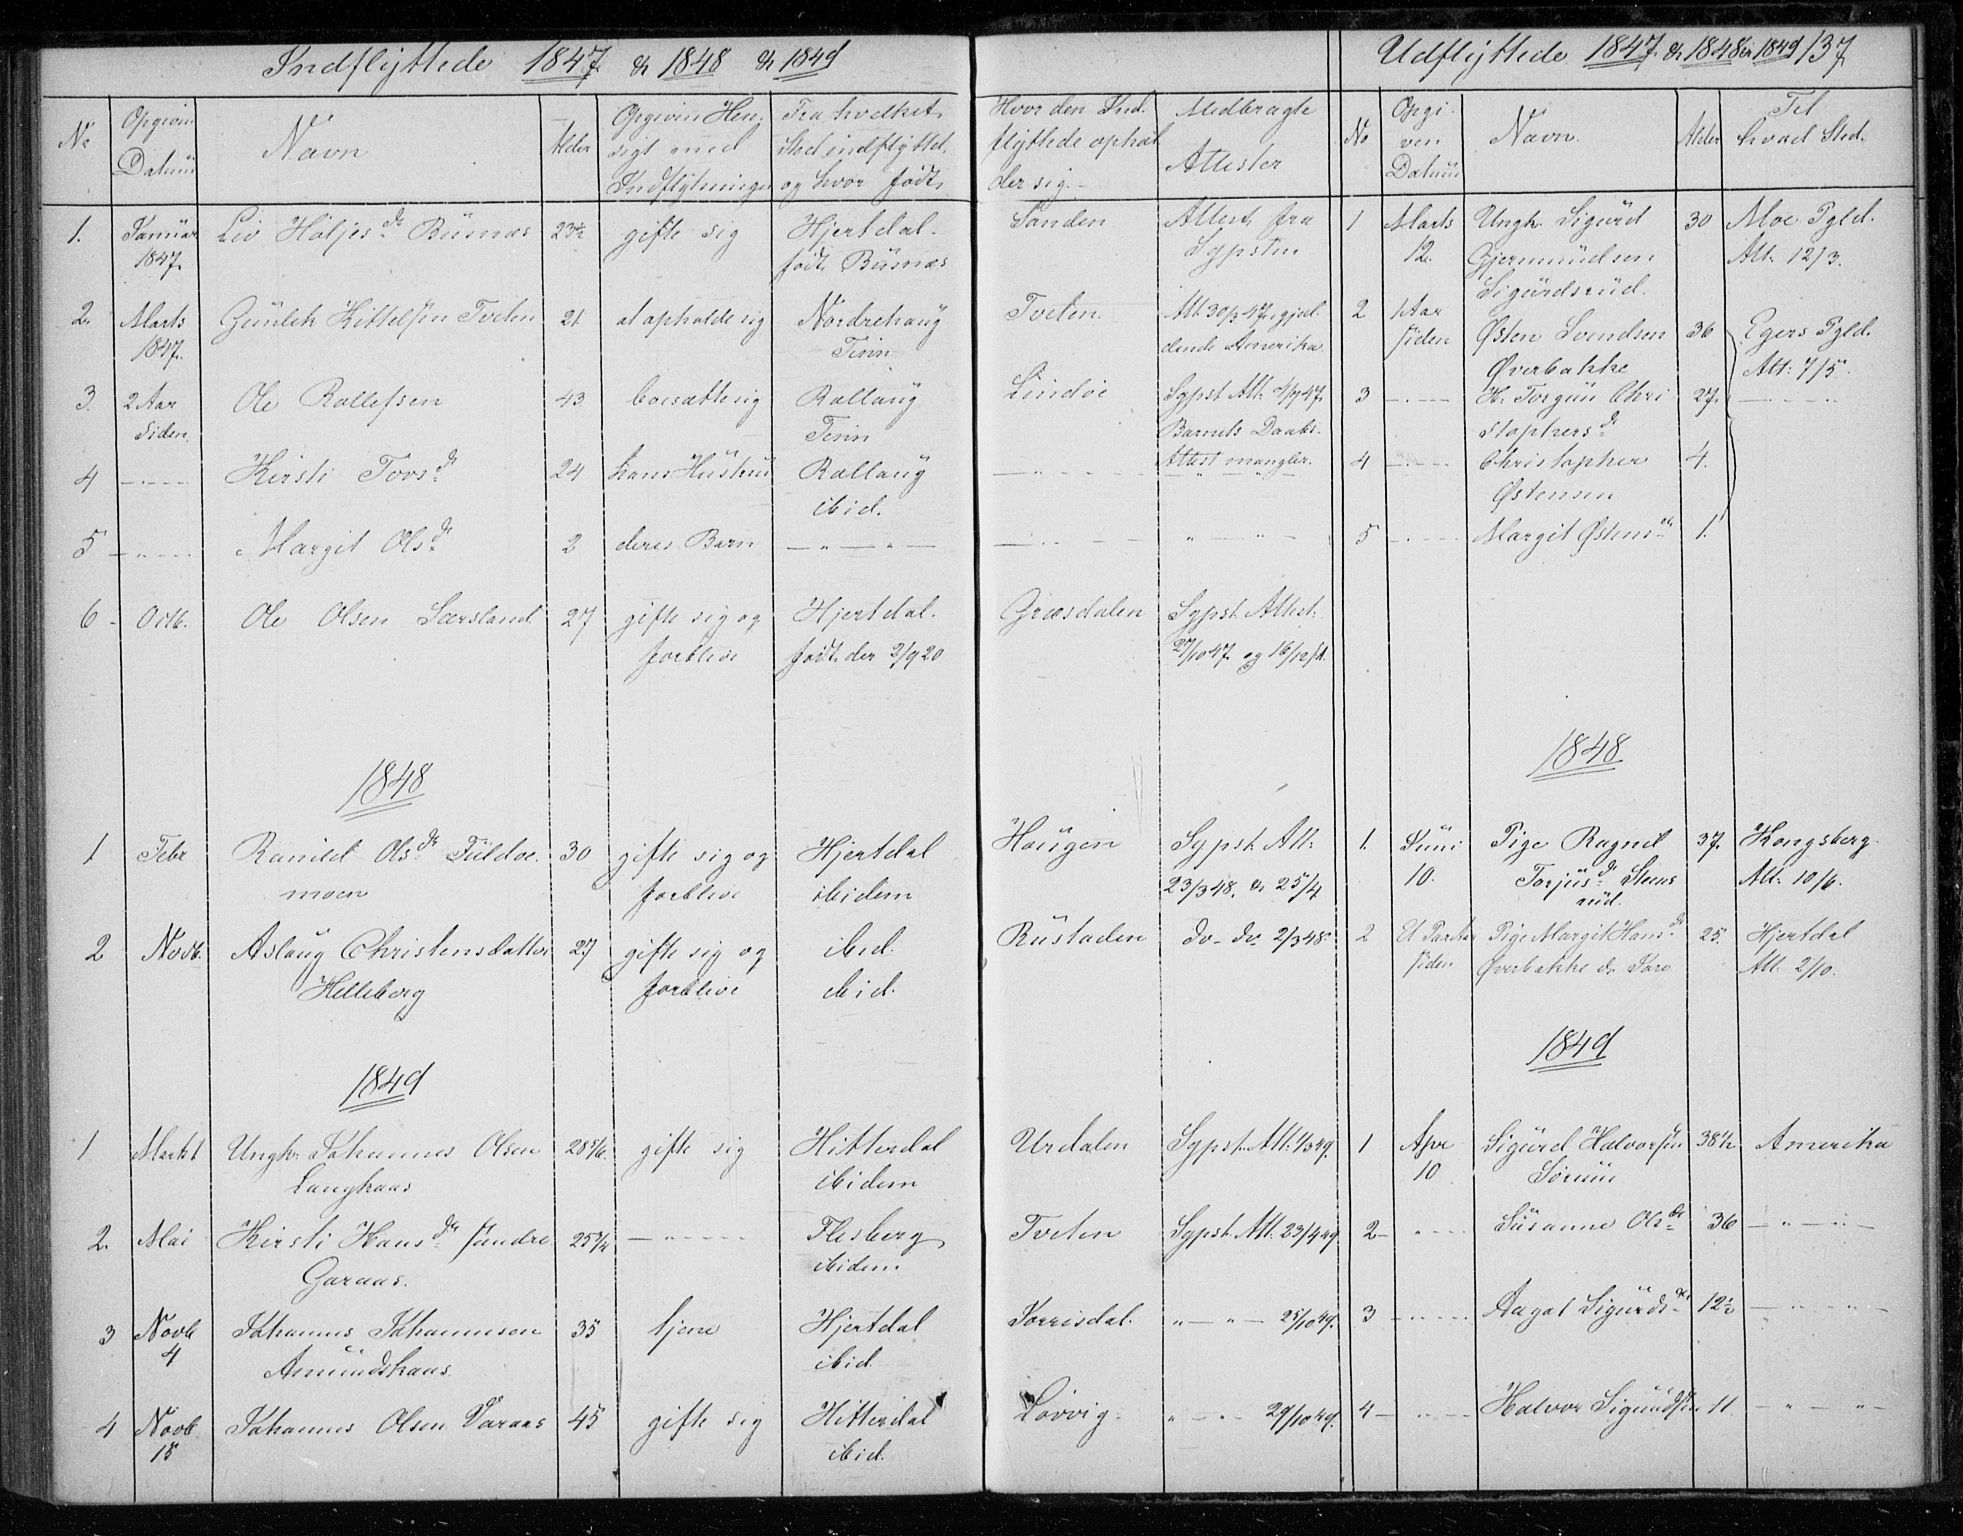 Indflyttede 1847 & 1848 & 1849
No
Opgiven Datum
Navn
Alder
Opgiven Hensigt med Indflytningen
Fra hvilket Sted indflyttet og hvor født
Hvor den Indflyttede opholder sig.
Medbragte Attester
1. Januar 1847. Liv Høljesdr Busnæs 23½ gifte sig Hjertdal. født Busnæs Sanden Attest fra Sgpsten
2. Marts 1847. Gunlek Kittelsen Tveten 21 at opholde sig Nordrehaug Tinn Tveten. Att. 30/3 47. gjeldende Amerika
3. 2 Aar siden. Ole Rollefsen 43 bosatte sig Rollaug Tinn Lindøe Sgpst. Att. 4/7 47. Barnets Daabs-
4 — " — Kirsti Tovsdr 24 hans Hustru Rollaug ibid. — " — Attest mangler.
5 — " — Margit Olsdr 2 deres Barn — " — " — — " — " — " —
6 - Octb. Ole Olsen Særsland 27 gifte sig og forblive Hjertdal. født der 2/9 20 Græsdalen Sgpst. Attest 27/10 47. og 16/12
1848
1 Febr Ranild Olsdr Fuldsemoen 30 gifte sig og forblive Hjertdal ibidem Haugen Sgpst. Att: 23/3 48. & 25/4
2 Novb. Aslaug Christensdatter Helleberg 27 gifte sig og forblive ibid. ibid. Rustaden do- do 2/3 48.
1849
1 Marts 1 Ungk. Johannes Olsen Langkaas 28 5/6 gifte sig Hitterdal ibidem Urdalen Sgpst. Att. 1/3 49.
2. Mai Kirsti Hansdr søndre Garaas. 25 3/4 — " — Flesberg ibidem. Tveten Sgpst. Att. 23/4 49
3 Novb 4 Johannes Johannesen Amundskaas. 35 tjene Hjertdal ibid. Korrisdal. " — " — 25/10 49.
4 Novb 15 Johannes Olsen Varaas 45 gifte sig Hitterdal ibid. Løvvig. " — " — 29/10 49.
Udflyttede 1847. & 1848 & 1849 137
No
Opgiven Datum
Navn.
Alder
Til hvad Sted.
1 Marts 12. Ungk. Sigurd Gjermundsen Sigurdsrud. 30 Moe Pgld. Att. 12/3.
2 1 Aar siden Østen Svendsen Øverbakke 36 Egers Pgld. Att: 7/5.
3 — " — H. Torgun Christophersdr 27. — " —
4 — " — Christopher Østensen 4.
5 — " — Margit Østensdr 1.
1848
1. Juni 10. Pige Ragnil Torjusdr Steensrud. 37. Kongsberg. Att. 10/6.
2 Et Par Aar siden Pige Margit Hansdr Øverbakke 25. Hjertdal Att. 2/10.
1849
1 Apr 10 Sigurd Halvorsen Sørum 38½ Amerika
2 — " — Susanne Olsdr 36 — " — " —
3 — " — Aagot Sigurdsdr 12½ — " — " —
4 — " — Halvor Sigurdsen 11 — " — " —